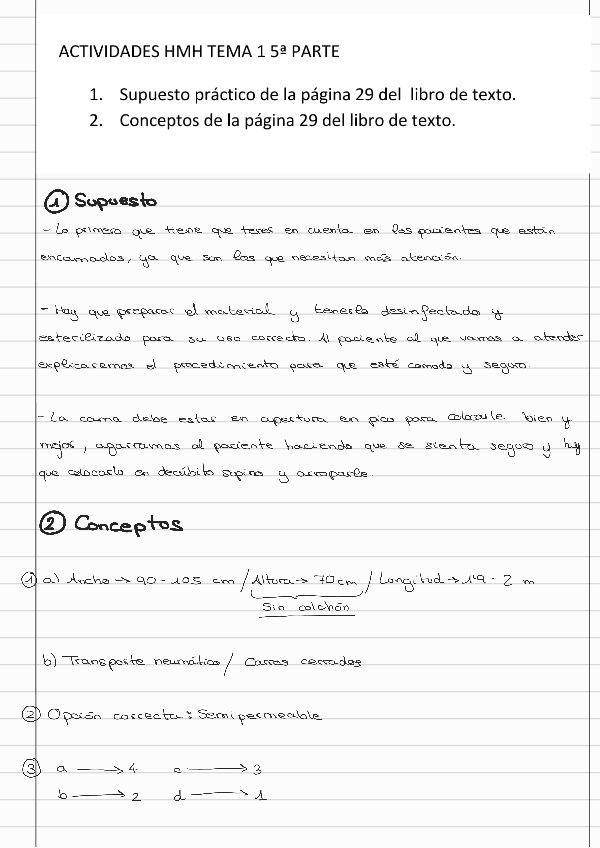 ACTIVIDADES HMH TEMA 1 5ª PARTE
1. Supuesto práctico de la página 29 del libro de texto.
2. Conceptos de la página 29 del libro de texto.
① Supuesto
- Lo primero que tiene que tener en cuenta en los pacientes que están
encamados, ya que son los que necesitan más atención.
- Hay que preparar el material y tenerlo desinfectado y
esterilizado para su uso correcto. Al paciente al que vamos a atender
explicaremos el procedimiento para que esté comodo y seguro.
- La cama debe estar en apertura en pico para colocarle bien y
mejor, agarramos al paciente haciendo que se sienta seguro y hay
que colocarlo en decúbito supino y arroparle.
② Conceptos
① a) Ancho → 90 - 105 cm / Altura → 70 cm / Longitud → 1'9 - 2 m
Sin colchón
b) Transporte neumático / Carros cerrados
② Opción correcta: Semipermeable
③ a → 4 c → 3
b → 2 d → 1